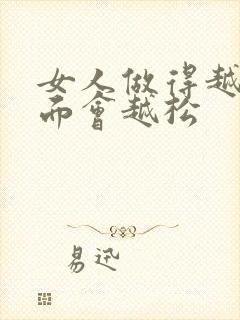 女人做得越
而会越松
易迅